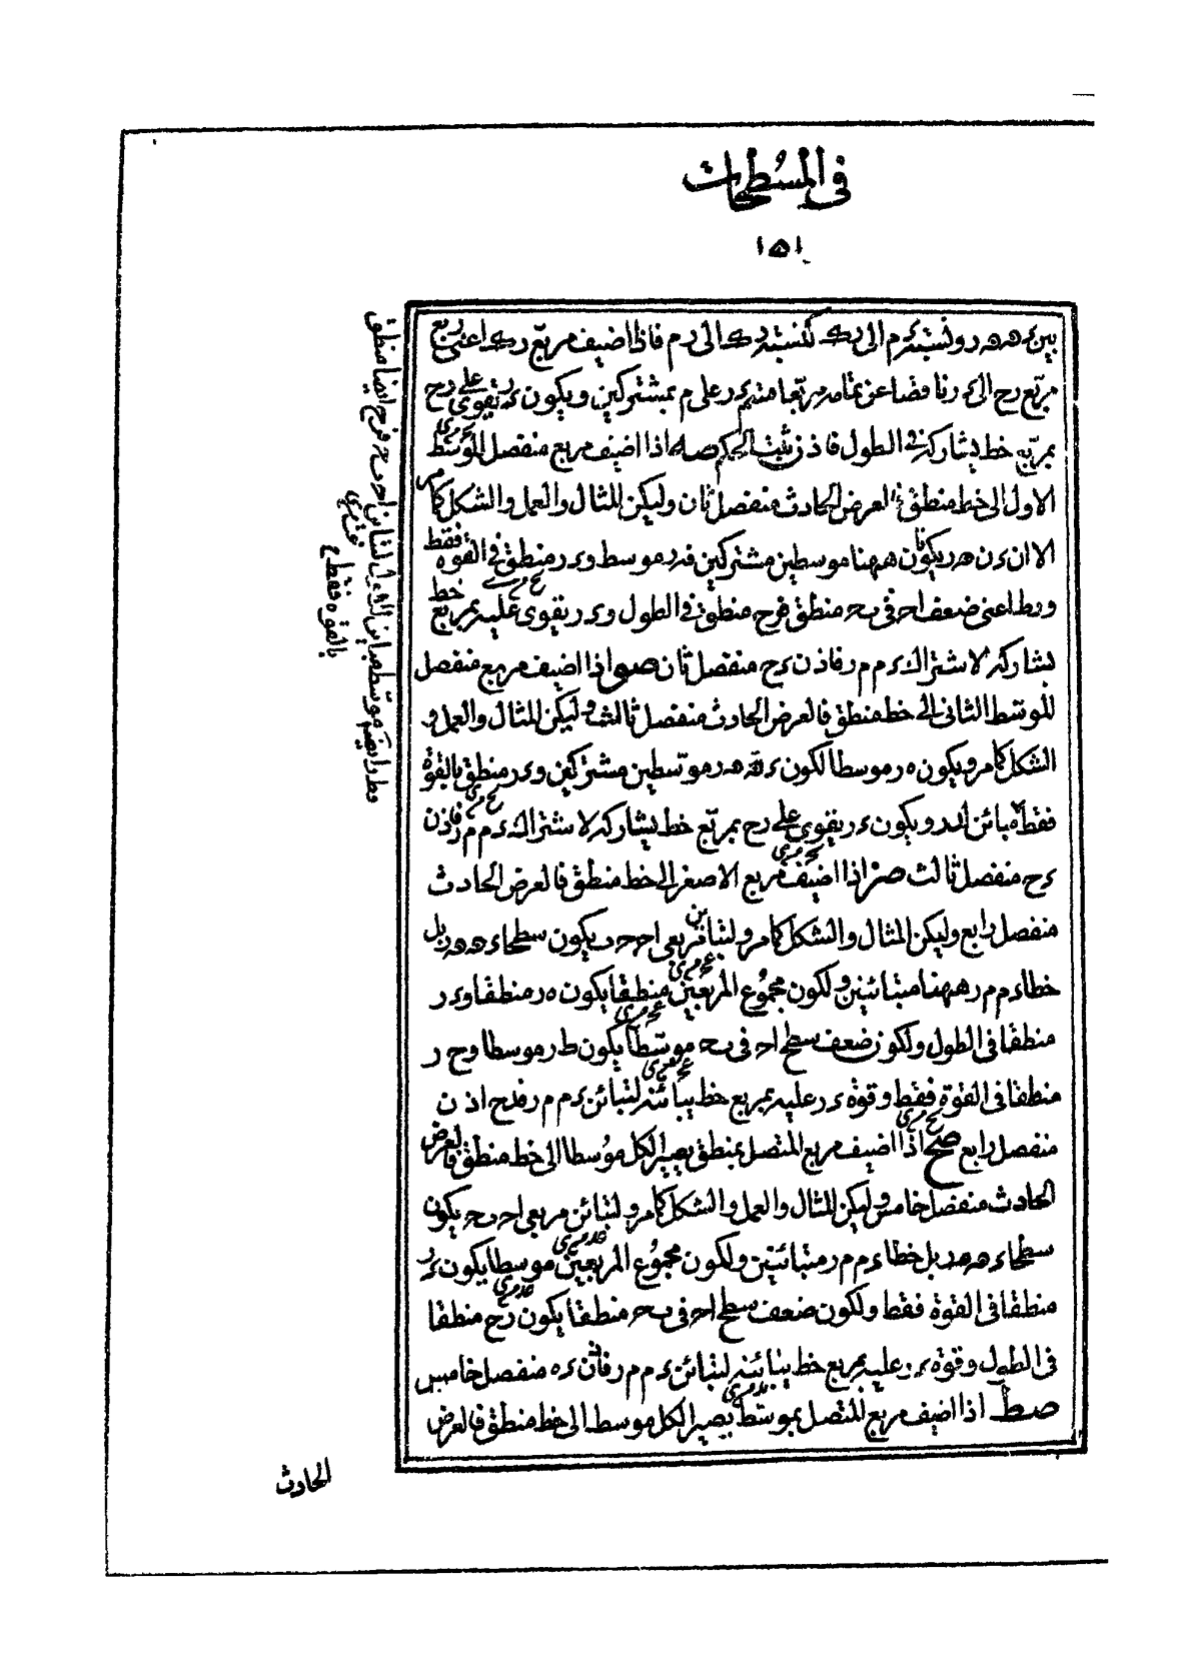 في المسطحات
١٥١
بين ء ه ه ر ونسبة ء م الى ر ك كنسبة ر ك الى ر م فاذا اضيف مربع ر ك اعنى ربع
مربع ر ح الى ء ر ناقصا عن تمامه مربعا منقسم ء ر على م بمشتركين ويكون ء ر يقوى على ر ح
بمربع خط يشاركه في الطول فاذن ثبت الحكم صه اذا اضيف مربع منفصل الموسط
الاول الى خط منطق فالعرض الحادث منفصل ثان وليكن المثال والعمل والشكل كما مر
الا ان ء ن ه ر يكونان ههنا موسطين مشتركين فء ر موسط و ء ر منطق في القوة فقط
و ر ط اعنى ضعف ا ح في ب ح منطق فر ح منطق في الطول و ء ر يقوى عليه بمربع خط
يشاركه لاشتراك ء م م ر فاذن ء ح منفصل ثان صو اذا اضيف مربع منفصل
الموسط الثانى الى خط منطق فالعرض الحادث منفصل ثالث وليكن المثال والعمل و
الشكل كما مر ويكون ه ر موسطا لكون ء ه ه ر موسطين مشتركين و ء ر منطق بالقوة
فقط ويكون ء ر يقوى على ر ح بمربع خط يشاركه لاشتراك ء م م ر فاذن
ء ح منفصل ثالث صز اذا اضيف مربع الاصغر الى خط منطق فالعرض الحادث
منفصل رابع وليكن المثال والشكل كما مر ولتباين مربعى ا ح ح ب يكون سطحا ء ه ه ر بل
خطا ء م م ر ههنا متبائنين ولكون مجموع المربعين منطقا يكون ه ر منطقا و ء ر
منطقا في الطول ولكون ضعف سطح ا ح في ب ح موسطا يكون ط ر موسطا و ح ر
منطقا في القوة فقط وقوة ء ر عليه بمربع خط يبائنه لتبائن ء م م ر فء ح اذن
منفصل رابع صح اذا اضيف مربع المتصل بمنطق يصير الكل موسطا الى خط منطق فالعرض
الحادث منفصل خامس وليكن المثال والعمل والشكل كما مر ولتبائن مربعى ا ح ب ح يكون
سطحا ء ه ه ر بل خطا ء م م ر متبائنين ولكون مجموع المربعين موسطا يكون ء ر
منطقا في القوة فقط ولكون ضعف سطح ا ح في ب ح منطقا يكون ر ح منطقا
في الطول وقوة ء ر عليه بمربع خط يبائنه لتبائن ء م م ر فاذن ء ه منفصل خامس
صط اذا اضيف مربع المتصل بموسط يصير الكل موسط الى خط منطق فالعرض
الحادث